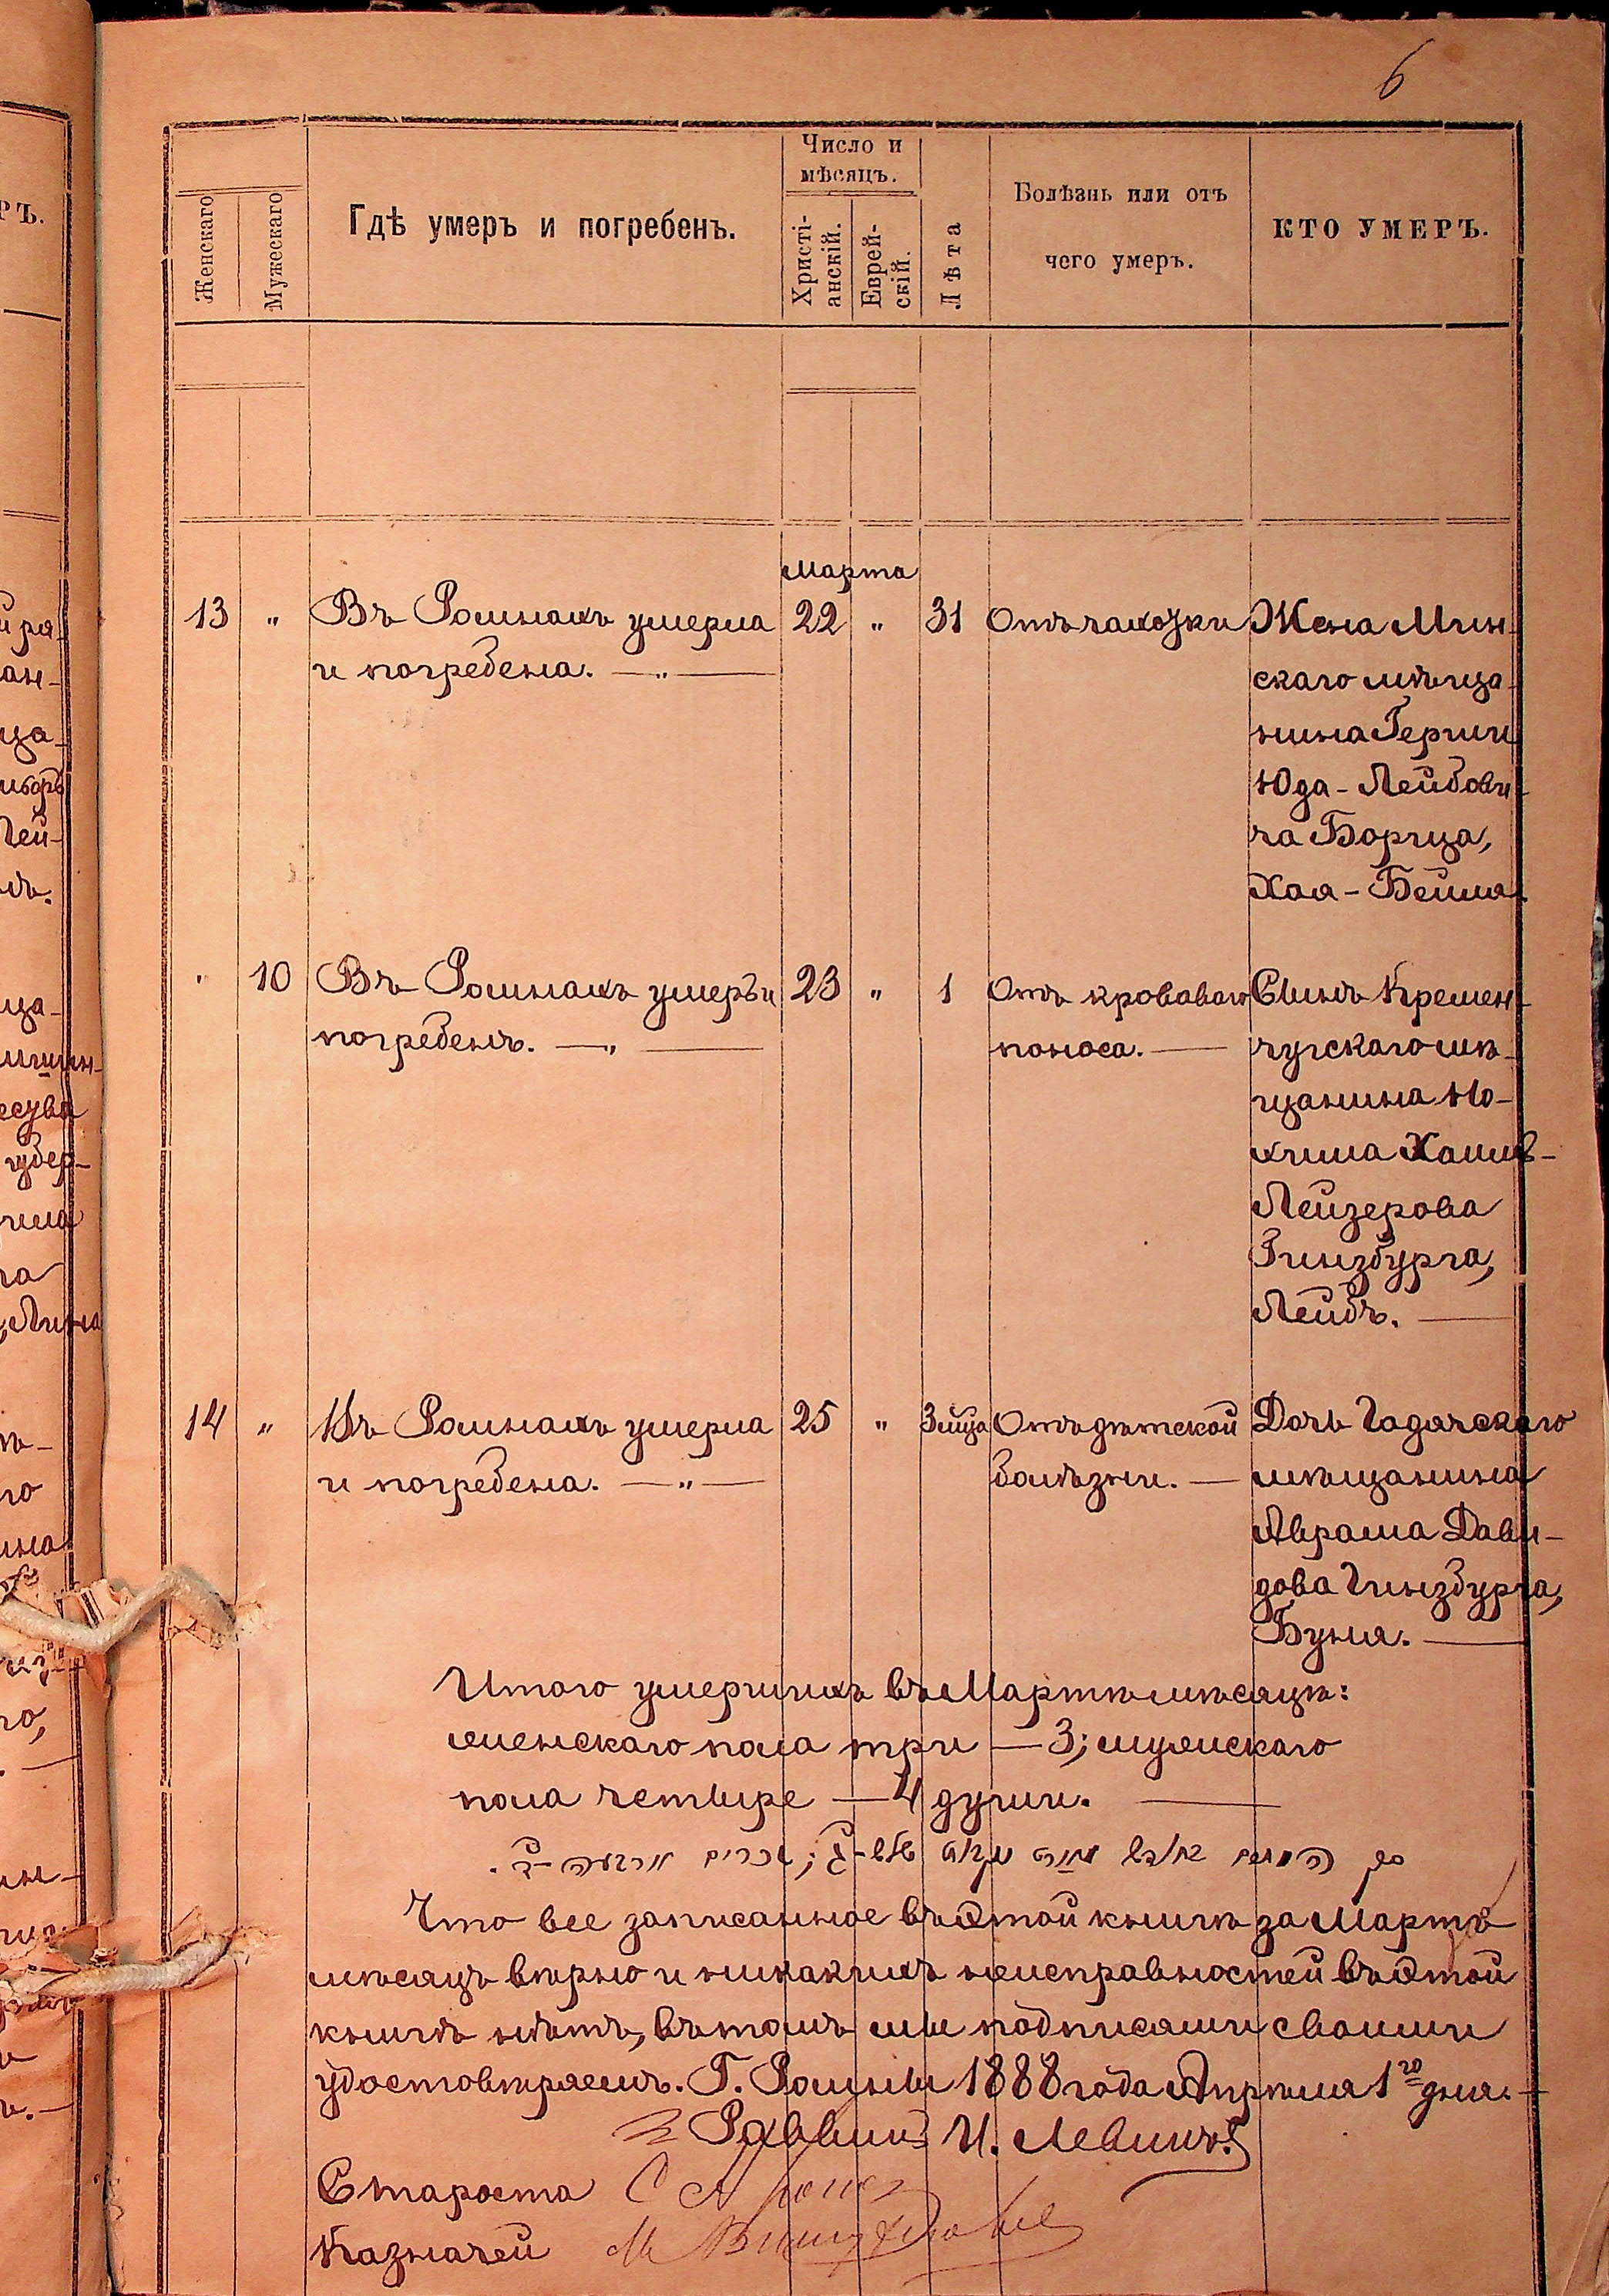 6
Число и
мѣсяцъ.
Женскаго
Мужескаго
Гдѣ умеръ и погребенъ.
Христі-
анскій.
Еврей-
скій.
Лѣта
Болѣзнь или отъ
чего умеръ.
КТО УМЕРЪ.
РЪ.
Марта
13 " Въ Ромнахъ умерла 22 " 31 Отъ чахотки Жена Мин-
и погребена. — " — скаго мѣща-
нина Герши
Юда-Лейбови-
ча Борща,
Хая-Бейла.
" 10 Въ Ромнахъ умеръ и 23 " 1 Отъ кроваваго Сынъ Кремен-
погребенъ. — " — поноса. — чугскаго мѣ-
щанина Ио-
хима Хаимъ-
Лейзерова
Гинзбурга,
Лейбъ. —
14 " Въ Ромнахъ умерла 25 " 3 м-ца Отъ дѣтской Дочь Гадячскаго
и погребена. — " — болѣзни. — мѣщанина
Аврама Дави-
дова Гинзбурга,
Буня. —
Итого умершихъ въ Мартѣ мѣсяцѣ:
женскаго пола три — 3; мужескаго
пола четыре — 4 души. —
Что все записанное въ этой книгѣ за Мартъ
мѣсяцъ вѣрно и никакихъ неисправностей въ этой
книгѣ нѣтъ, въ томъ мы подписями своими
удостовѣряемъ. Г. Ромны 1888 года Апрѣля 1го дня. —
Раввинъ И. Левинъ.
Староста
Казначей М